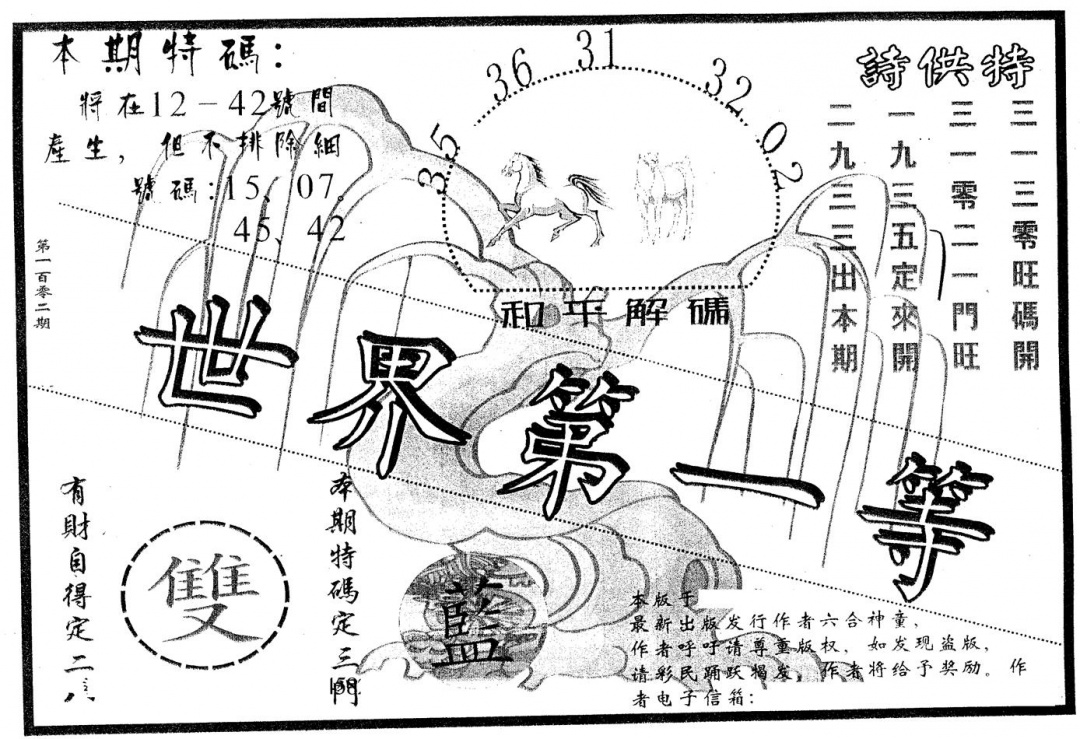 本期特碼：
將在12－42號間
產生，但不排除細
號碼:15、07.
45、42
第一百零二期
35
36
31
32
02
和平解碼
詩供特
三一三零旺碼開
三一零二一門旺
一九三五定來開
二九三三出本期
世界第一等
有財自得定二八
雙
本期特碼定三門
藍
本版于
最新出版发行作者六合神童，
作者呼吁请尊重版权，如发现盗版，
请彩民踊跃揭发，作者将给予奖励。作
者电子信箱：